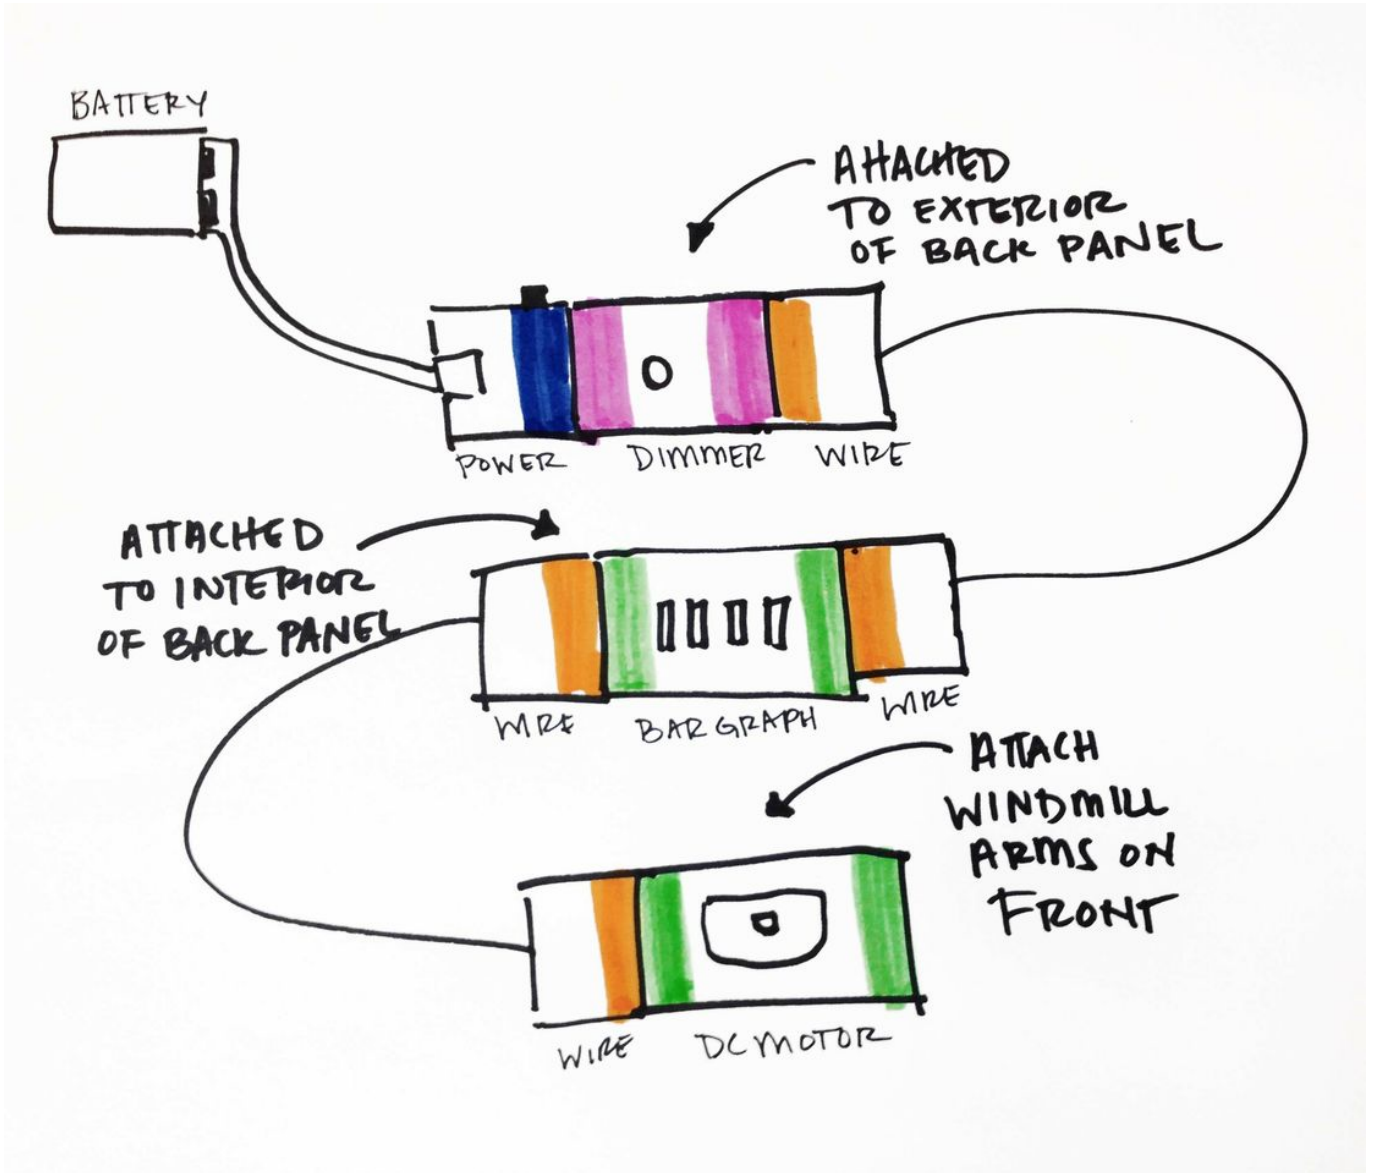 BATTERY
ATTACHED
TO EXTERIOR
OF BACK PANEL
POWER DIMMER WIRE
ATTACHED
TO INTERIOR
OF BACK PANEL
WIRE BARGRAPH WIRE
ATTACH
WINDMILL
ARMS ON
FRONT
WIRE DC MOTOR